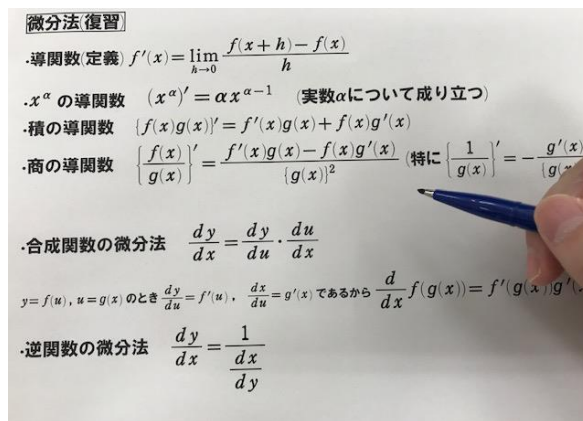 微分法(復習)
・導関数(定義) f'(x)=lim_{h→0} \frac{f(x+h)-f(x)}{h}
・x^α の導関数 (x^α)'=αx^{α-1} (実数αについて成り立つ)
・積の導関数 {f(x)g(x)}'=f'(x)g(x)+f(x)g'(x)
・商の導関数 {\frac{f(x)}{g(x)}}'=\frac{f'(x)g(x)-f(x)g'(x)}{{g(x)}^2} (特に {\frac{1}{g(x)}}'=-\frac{g'(x)}{{g(x
・合成関数の微分法 \frac{dy}{dx}=\frac{dy}{du}・\frac{du}{dx}
y=f(u), u=g(x) のとき \frac{dy}{du}=f'(u), \frac{dx}{du}=g'(x) であるから \frac{d}{dx}f(g(x))=f'(g(x))g'(
・逆関数の微分法 \frac{dy}{dx}=\frac{1}{\frac{dx}{dy}}